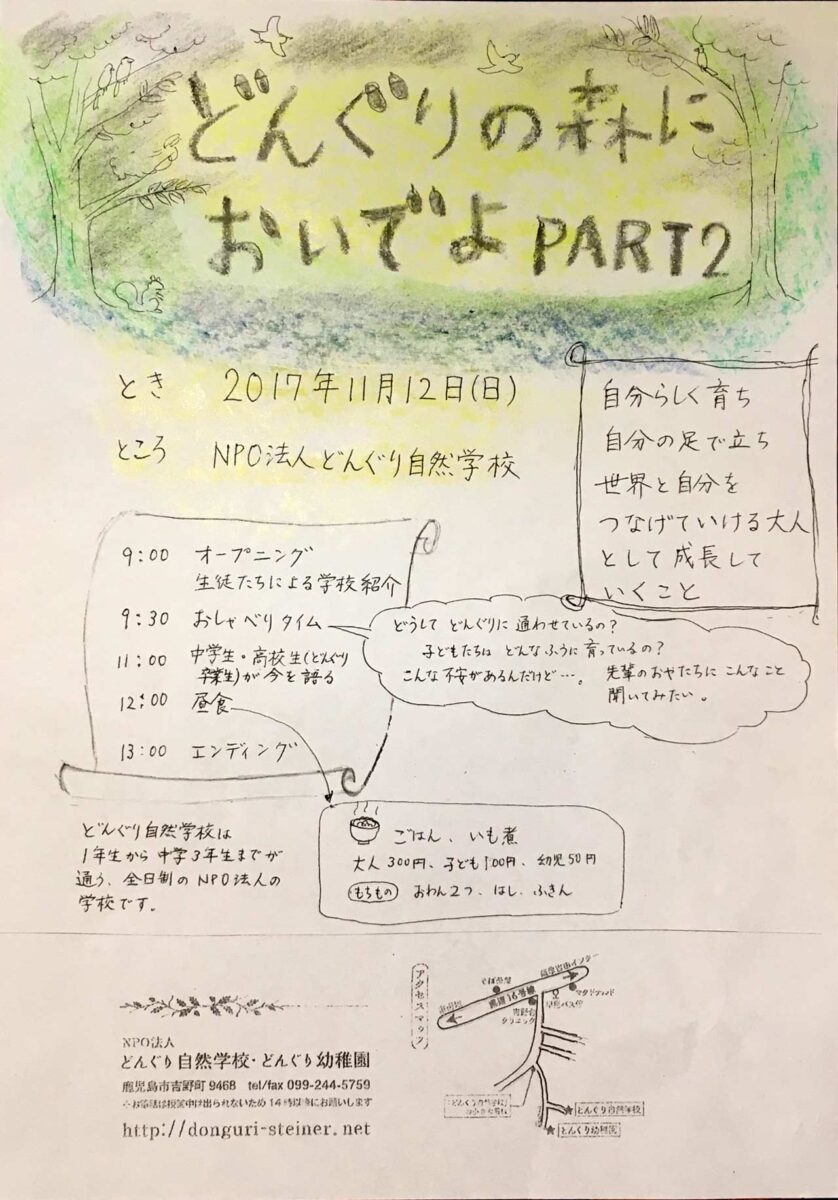 どんぐりの森に
おいでよ PART2
とき 2017年11月12日(日)
ところ NPO法人どんぐり自然学校
自分らしく育ち
自分の足で立ち
世界と自分を
つなげていける大人
として成長して
いくこと
9:00 オープニング
生徒たちによる学校紹介
9:30 おしゃべりタイム
どうしてどんぐりに通わせているの?
子どもたちはどんなふうに育っているの?
こんな不安があるんだけど…。 先輩のおやたちにこんなこと
聞いてみたい。
11:00 中学生・高校生(どんぐり
卒業生)が今を語る
12:00 昼食
13:00 エンディング
ごはん、いも煮
大人300円、子ども100円、幼児50円
もちもの おわん2つ、はし、ふきん
どんぐり自然学校は
1年生から中学3年生までが
通う、全日制のNPO法人の
学校です。
NPO法人
どんぐり自然学校・どんぐり幼稚園
鹿児島市吉野町9468 tel/fax 099-244-5759
お電話は授業中は出られないため14時以降にお願いします
http://donguri-steiner.net
アクセスマップ
県道16号線
吉野台
クリニック
早馬バス停
マクドナルド
どんぐり自然学校
どんぐり幼稚園